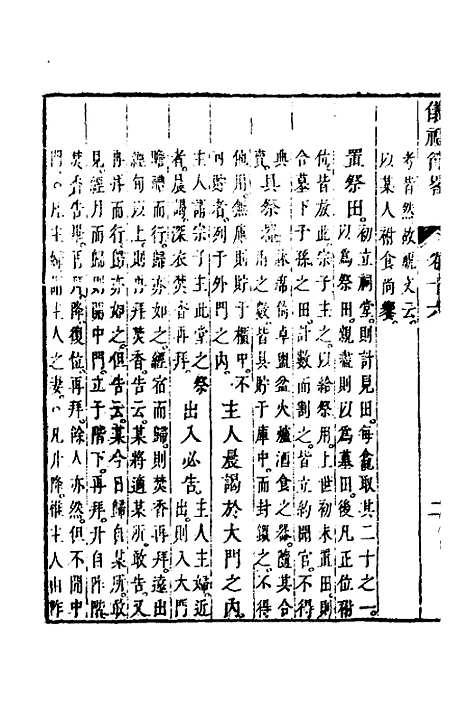 儀禮節畧
卷十六
二
考皆然故祝文云
以某人祔食尚饗
置祭田初立祠堂則計見田每龕取其二十之一
以爲祭田親盡則以爲墓田後凡正位祔
位皆放此宗子主之以給祭用上世初未置田則
合墓下子孫之田計數而割之皆立約聞官不得
典賣具祭器牀席倚卓盥盆火爐酒食之器隨其合
用之數皆具貯于庫中而封鎖之不得
他用無庫則貯于櫃中不
可貯者列于外門之內主人晨謁於大門之內
主人謂宗子主此堂之祭
者晨謁深衣焚香再拜出入必告主人主婦近
出則入大門
瞻禮而行歸亦如之經宿而歸則焚香再拜遠出
經旬以上則再拜焚香告云某將適某所敢告又
再拜而行歸亦如之但告云某今日歸自某所敢
見經月而歸則開中門立于階下再拜升自阼階
焚香告畢再拜降復位再拜餘人亦然但不開中
門凡主婦謂主人之妻凡升降惟主人由阼